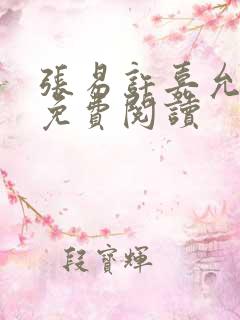 張易許嘉允
免費閱讀
段寶輝